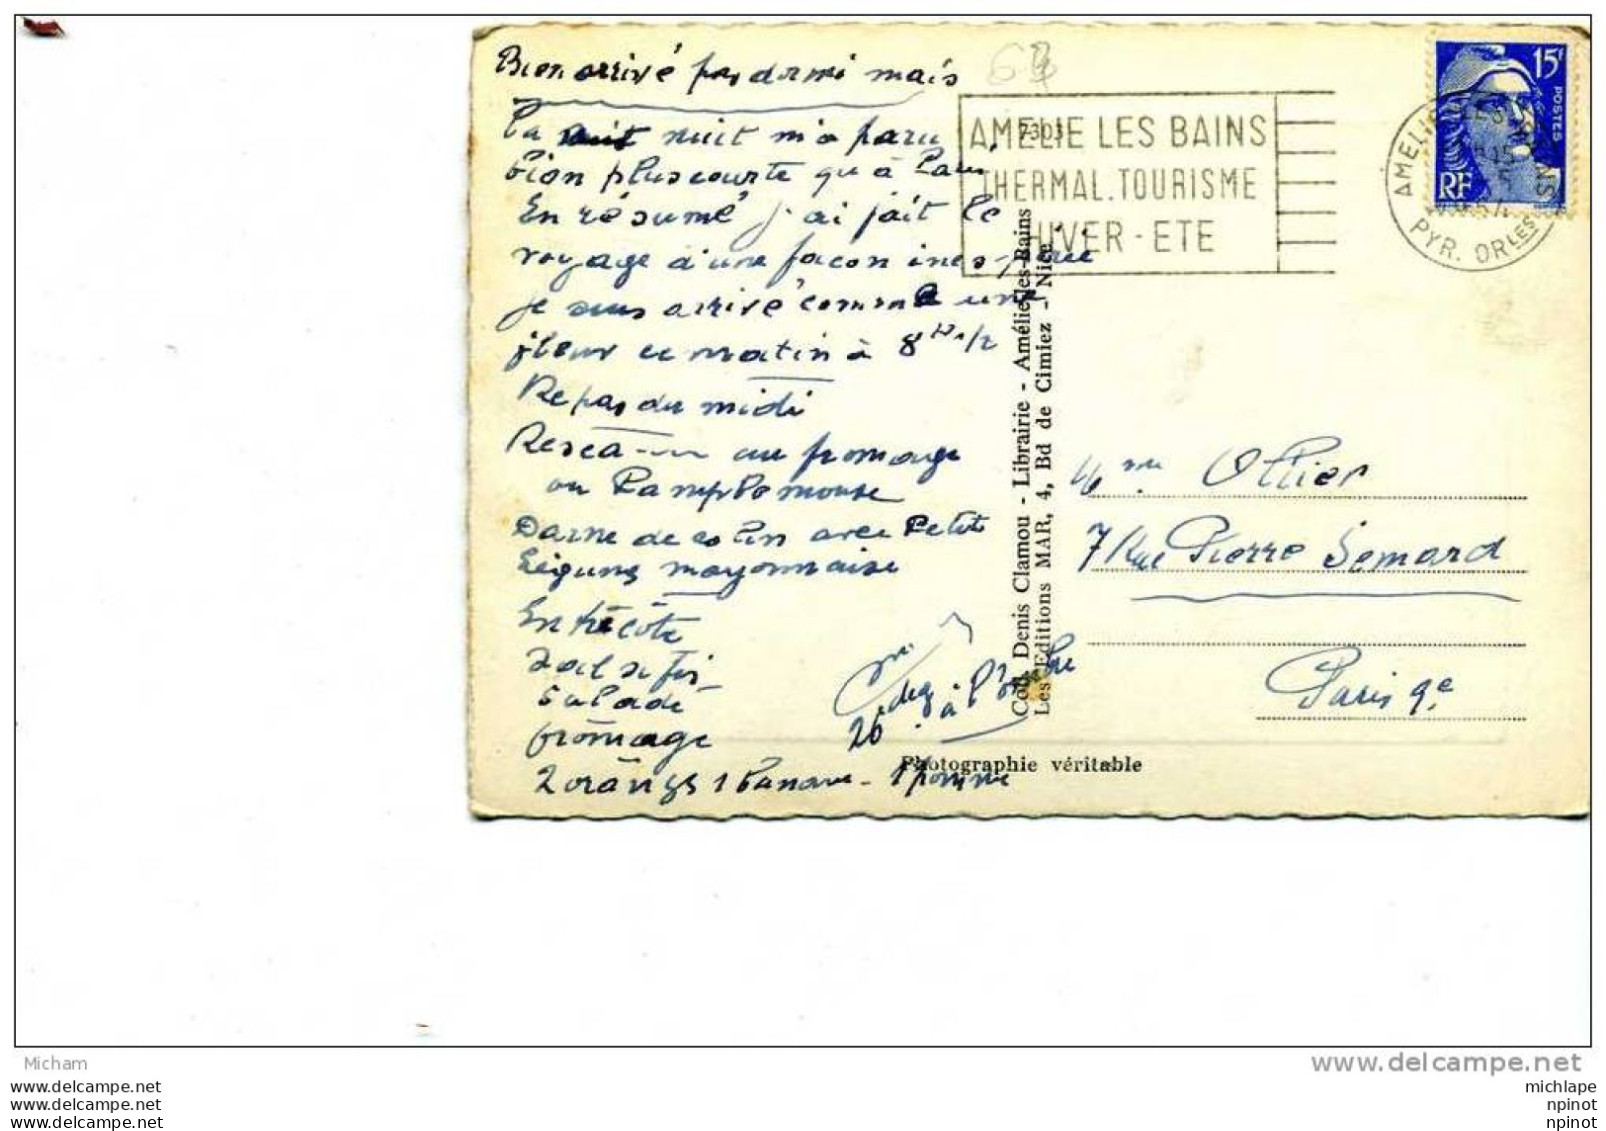 Bien arrivé pas dormi mais
la nuit nuit m'a paru
bien plus courte qu'à Paris
En résumé j'ai fait le
voyage d'une facon inespérée
je suis arrivé comme une
fleur ce matin à 8 H 1/2
Repas du midi
au fromage
ou Pamplemouse
Darne de colin avec Petits
Légums mayonnaise
Entrecôte
Salsafis
Salade
fromage
2 oranges 1 Banane - 1 pomme
26 à l'ombre
7303
AMELIE LES BAINS
THERMAL.TOURISME
HIVER - ETE
15F
POSTES
RF
AMELIE LES BAINS
PYR. ORLES
Coll. Denis Clamou - Librairie - Amélie-les-Bains
Les Editions MAR, 4, Bd de Cimiez - Nice
Photographie véritable
Mme Ollier
7 Rue Pierre Semard
Paris 9e
Micham
www.delcampe.net
www.delcampe.net
www.delcampe.net
www.delcampe.net
michlape
npinot
npinot